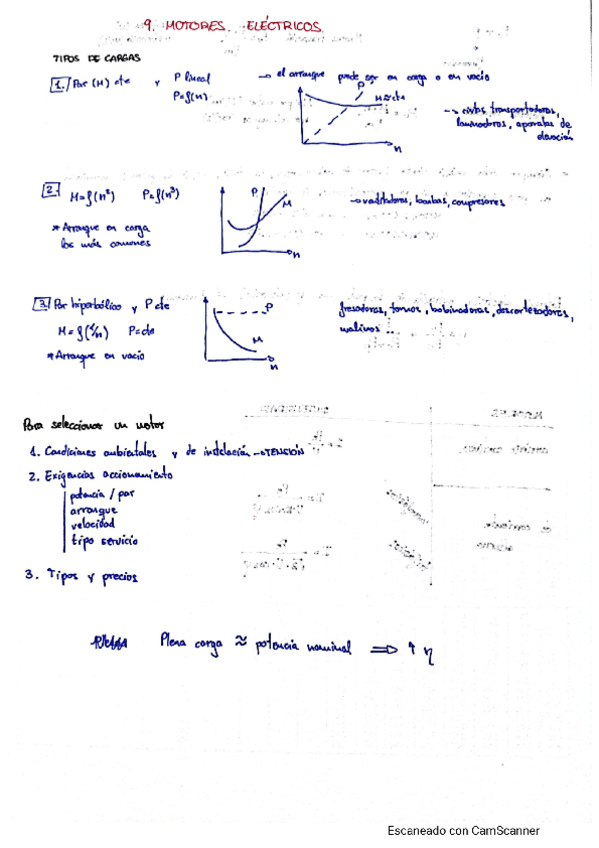 9. MOTORES ELÉCTRICOS
TIPOS DE CARGAS
1. Par (M) cte y P lineal → el arranque puede ser en carga o en vacío
P=f(n)
P
M≈cte
n
→ cintas transportadoras,
laminadoras, aparatos de
elevación
2. M=f(n²) P=f(n³)
P
M
n
→ ventiladores, bombas, compresores
* Arranque en carga
los más comunes
3. Par hiperbólico y P cte
M=f(1/n) P=cte
* Arranque en vacío
P
M
n
fresadoras, tornos, bobinadoras, descortezadoras,
molinos...
Para seleccionar un motor
1. Condiciones ambientales y de instalación → TENCIÓN
2. Exigencias accionamiento
potencia / par
arranque
velocidad
tipo servicio
3. Tipos y precios
Plena carga ≈ potencia nominal ⇒ ↑ η
Escaneado con CamScanner